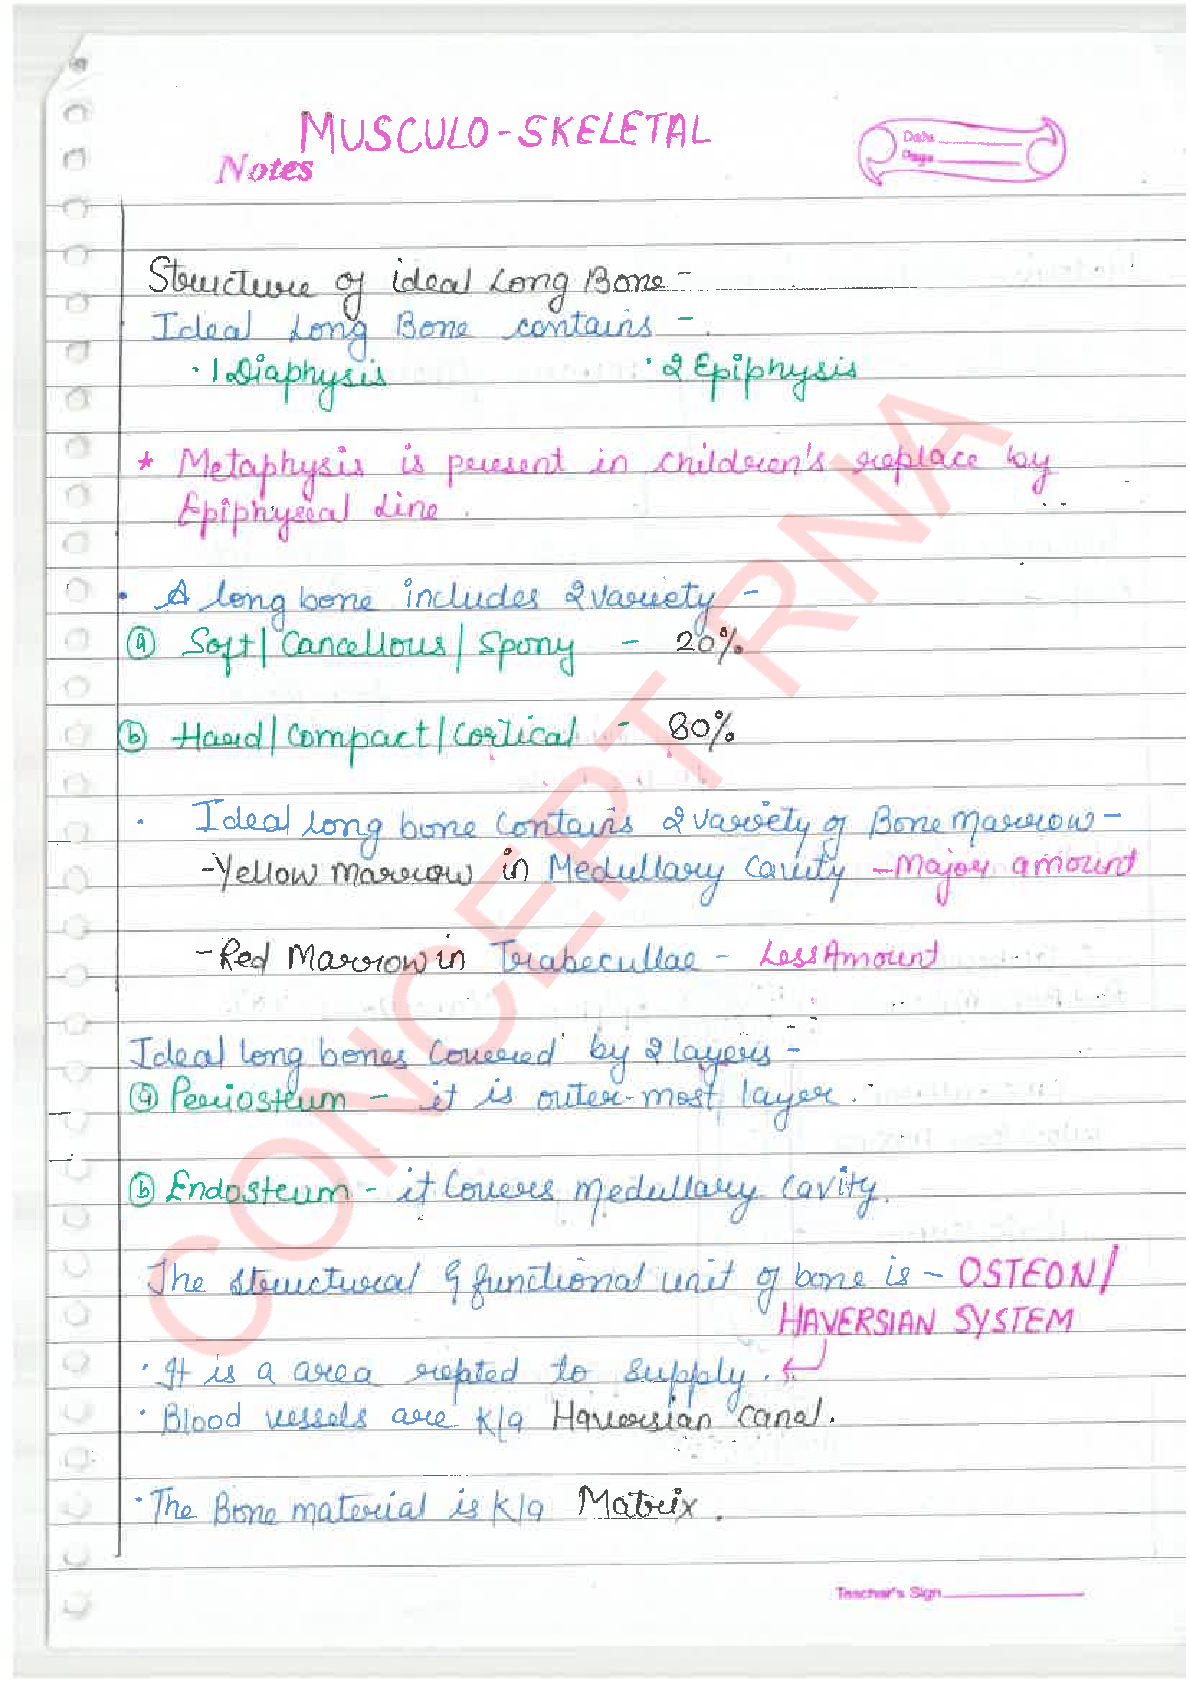 MUSCULO-SKELETAL
Notes
Date
Page
Structure of ideal Long Bone -
Ideal Long Bone contains -
· 1 Diaphysis · 2 Epiphysis
* Metaphysis is present in children's replace by
Epiphyseal Line.
· A long bone includes 2 variety -
(a) Soft/Cancellous/Spony - 20%
(b) Hard/Compact/Cortical - 80%
· Ideal long bone contains 2 variety of Bone marrow -
- Yellow marrow in Medullary cavity - Major amount
- Red Marrow in Trabecullae - Less Amount
Ideal long bones covered by 2 layers -
(a) Periosteum - it is outer-most layer.
(b) Endosteum - it covers medullary cavity.
The structural & functional unit of bone is - OSTEON/
HAVERSIAN SYSTEM
· It is a area to supply.
· Blood vessels are K/a Haversian canal.
· The Bone material is K/a Matrix.
Teacher's Sign
CONCEPT RNA